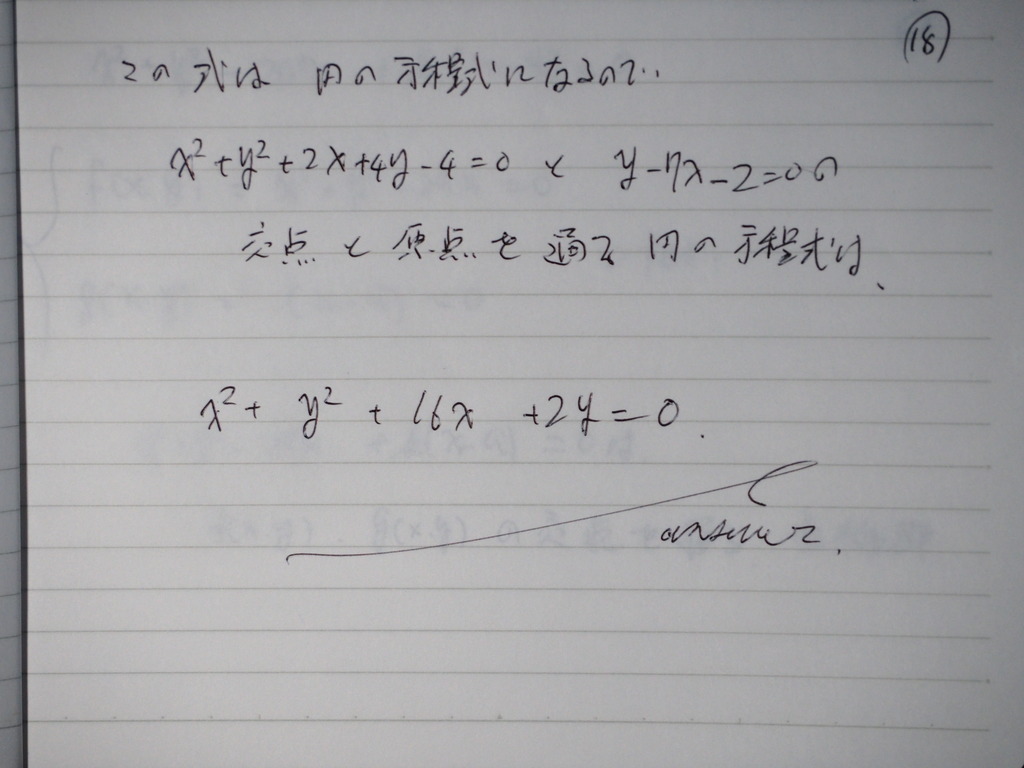 ⑱
この式は 円の方程式になるので..
x²+y²+2x+4y-4=0 と y-7x-2=0の
交点と原点を通る円の方程式は、
x²+ y² + 16x +2y=0.
answer.